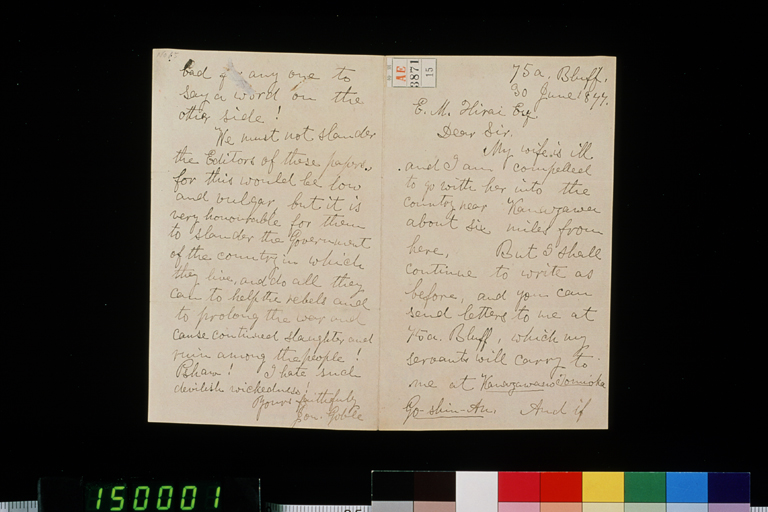 75a. Bluff.
30 June 1877.
E. M. Hirai Esq.
Dear Sir.
My wife is ill
and I am compelled
to go with her into the
country near Kanazawa
about six miles from
here. But I shall
continue to write as
before, and you can
send letters to me at
75a. Bluff, which my
servants will carry to
me at Kanazawa Tomioka
Go-shin-An. And if
bad for any one to
say a word on the
other side!
We must not slander
the Editors of these papers.
for this would be low
and vulgar but it is
very honourable for them
to slander the Government
of the country in which
they live, and do all they
can to help the rebels and
to prolong the war and
cause continued slaughter and
ruin among the people!
Pshaw! I hate such
devilish wickedness!
Yours faithfully
Jon. Goble
AE
3871
15
150001